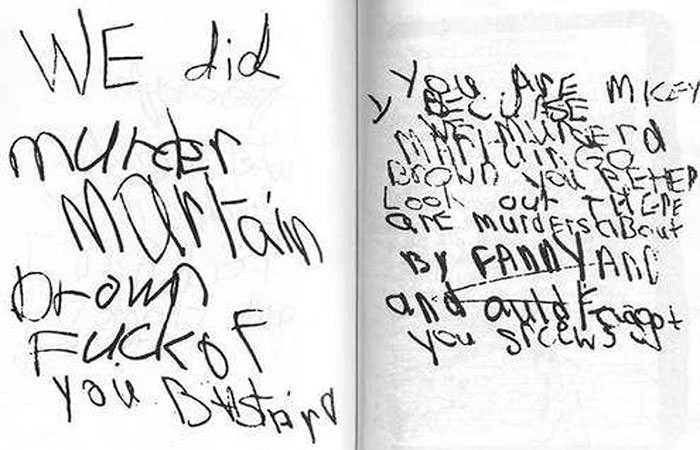 WE did
murder
martain
brown
Fuckof
you BAstard
you ArE micey
y BECUrSE
WE murdErd
MArtain GO
Brown you BEtEr
Look out THErE
arE murdErs aBout
By FANNY AND
and auld Faggot
you srcews